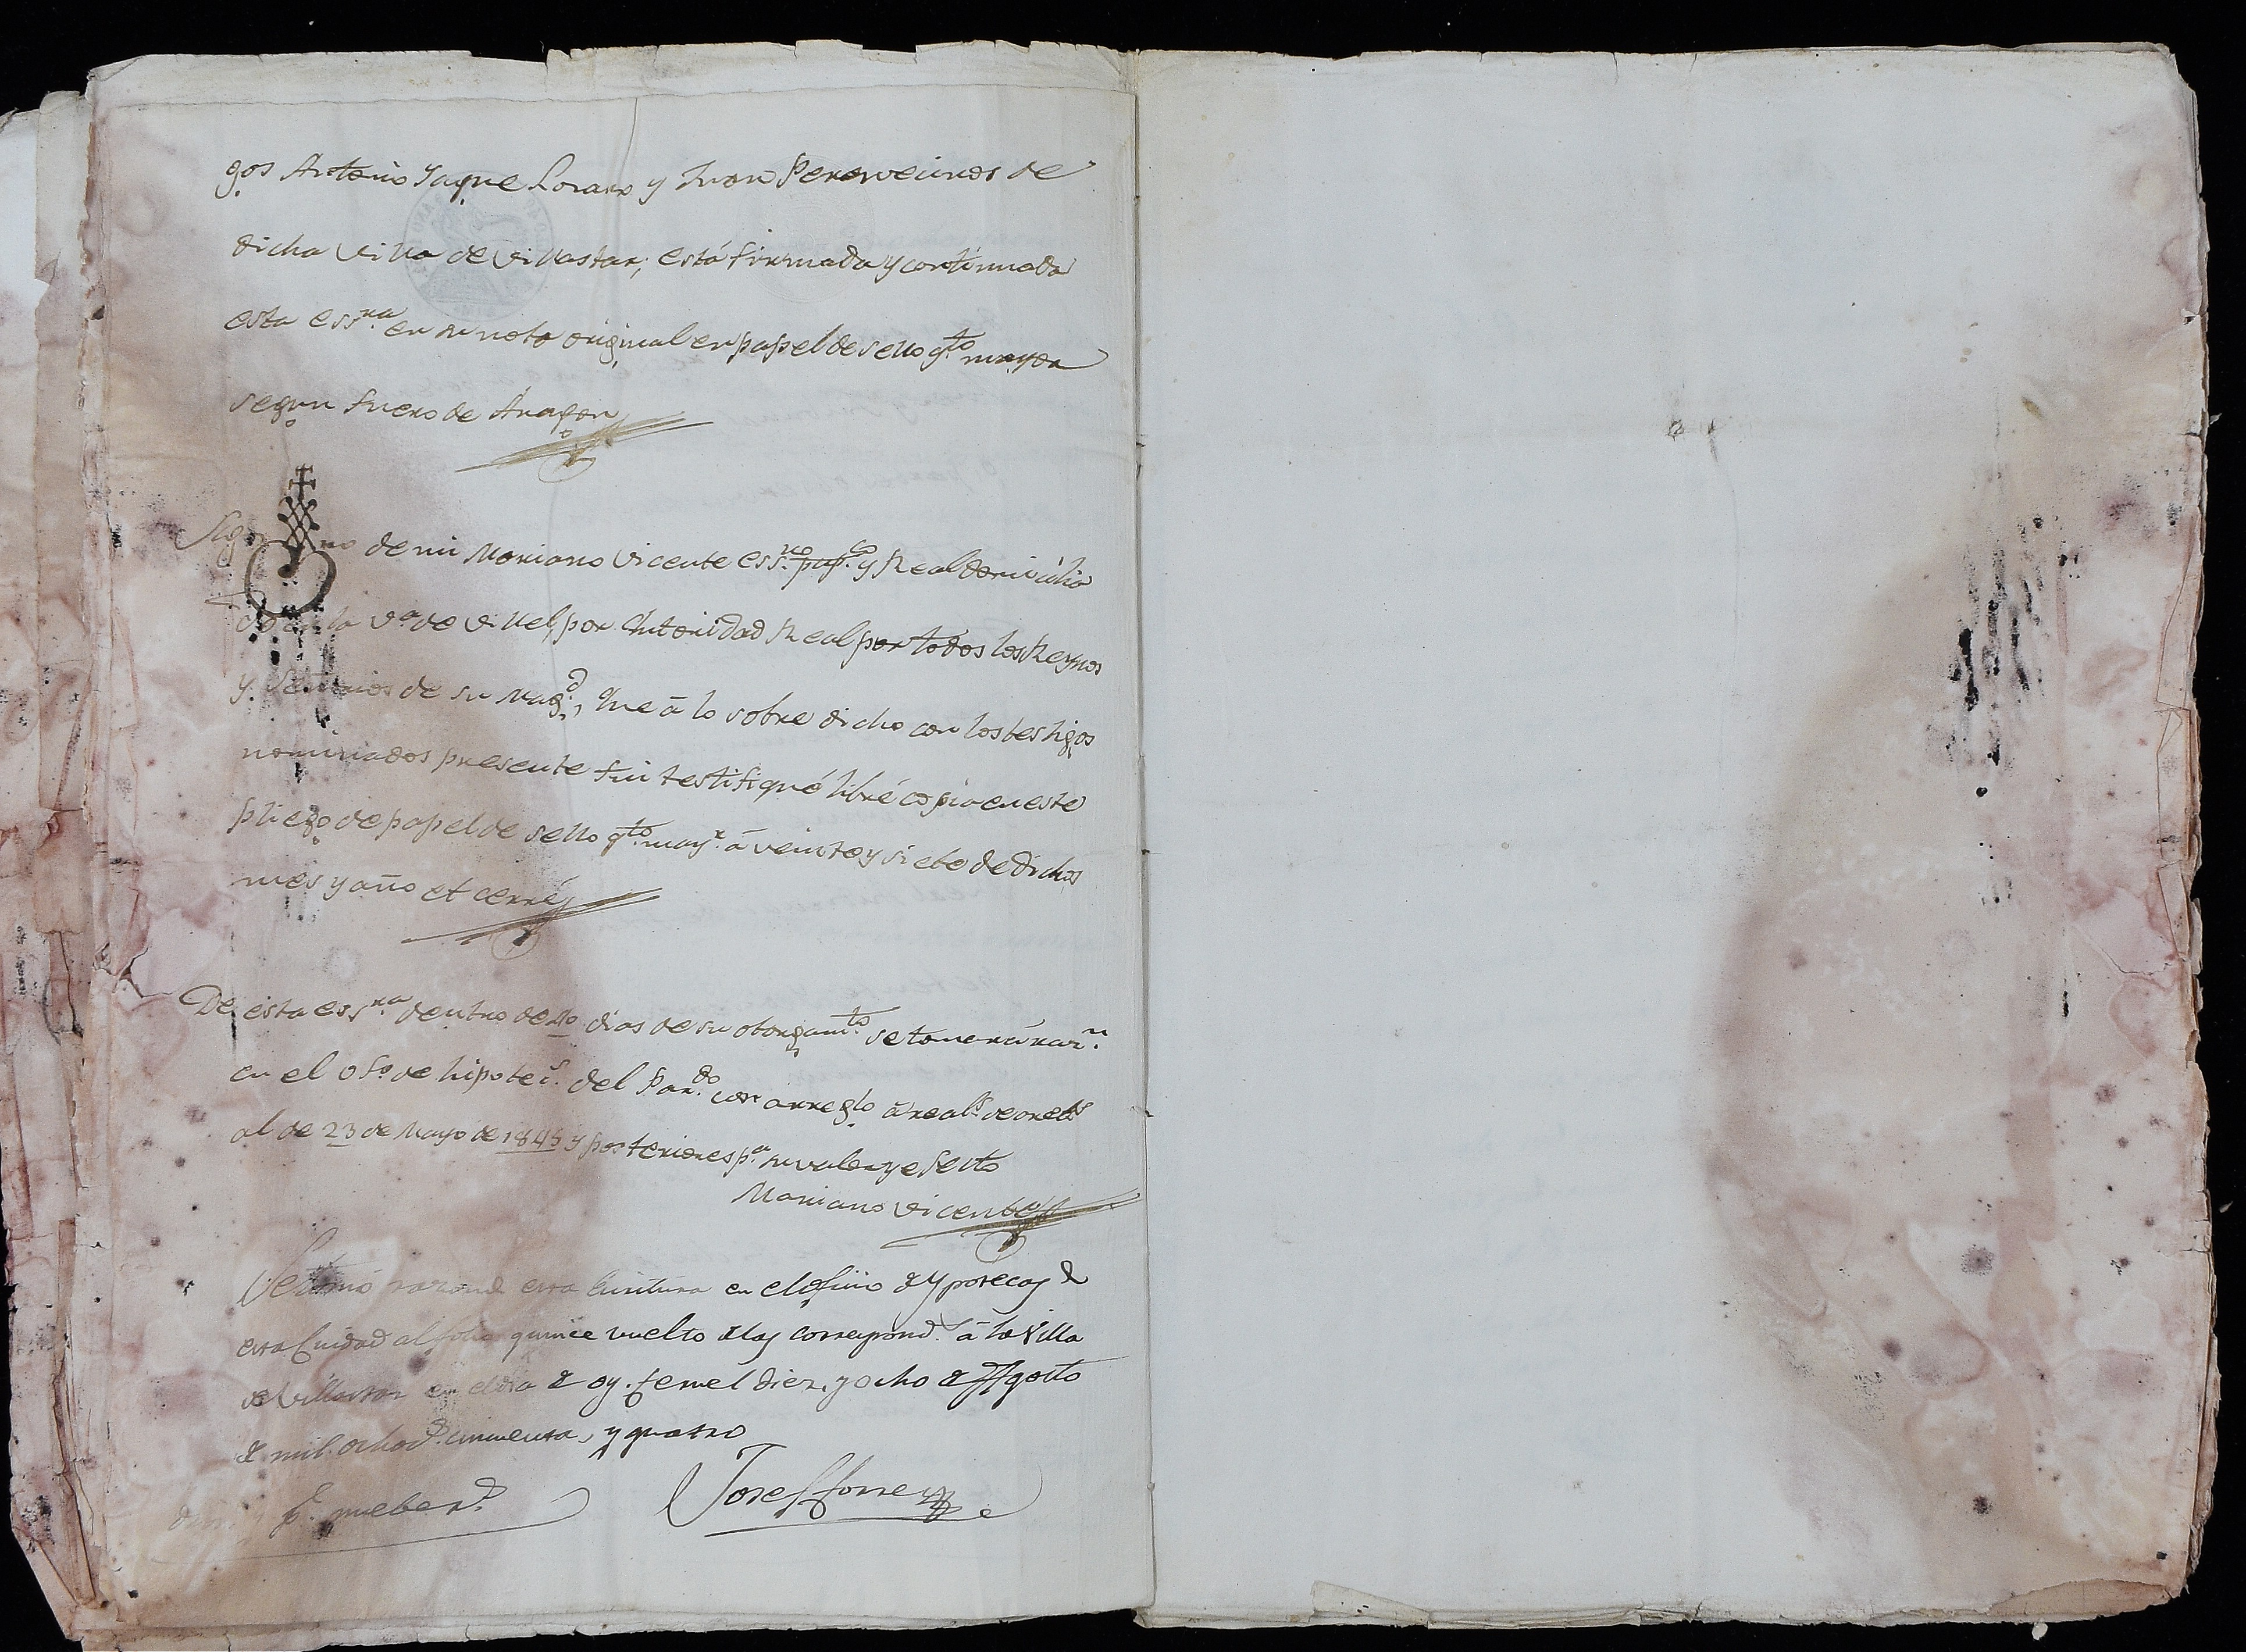 gos Antonio Yague Lozano y Juan Perez vecinos de
dicha Villa de Villastar; está firmada y continuada
esta ess.ra en su nota original en papel de sello q.to mayor
segun fuero de Aragon
Sig no de mi Mariano Vicente ess.no pub.co y Real domicilia
do en la V.a de Villel, por Autoridad Real por todos los Reynos
y Señorios de su Mag.d, Que á lo sobre dicho con los testigos
nominados presente fui testifiqué libré copia en este
pliego de papel de sello q.to may.r á veinte y siete de dichos
mes y año et cerré
De esta ess.ra dentro de 40 dias de su otorgam.to se tomará raz.n
en el of.o de hipotec.s del Par.do con arreglo á real.s decret.s
al de 23 de Mayo de 1845 y posteriores p.a su valor y efecto
Mariano Vicente
Se tomó razon de esta Escritura en el ofisio de Ypotecas de
esta Ciudad al folio quince vuelto de las correspond.s á la Villa
de Villastar en el dia de oy. Teruel diez, y ocho de Agosto
de mil ochoc.s cinquenta, y quatro
nuebe r.s
Josef Torres